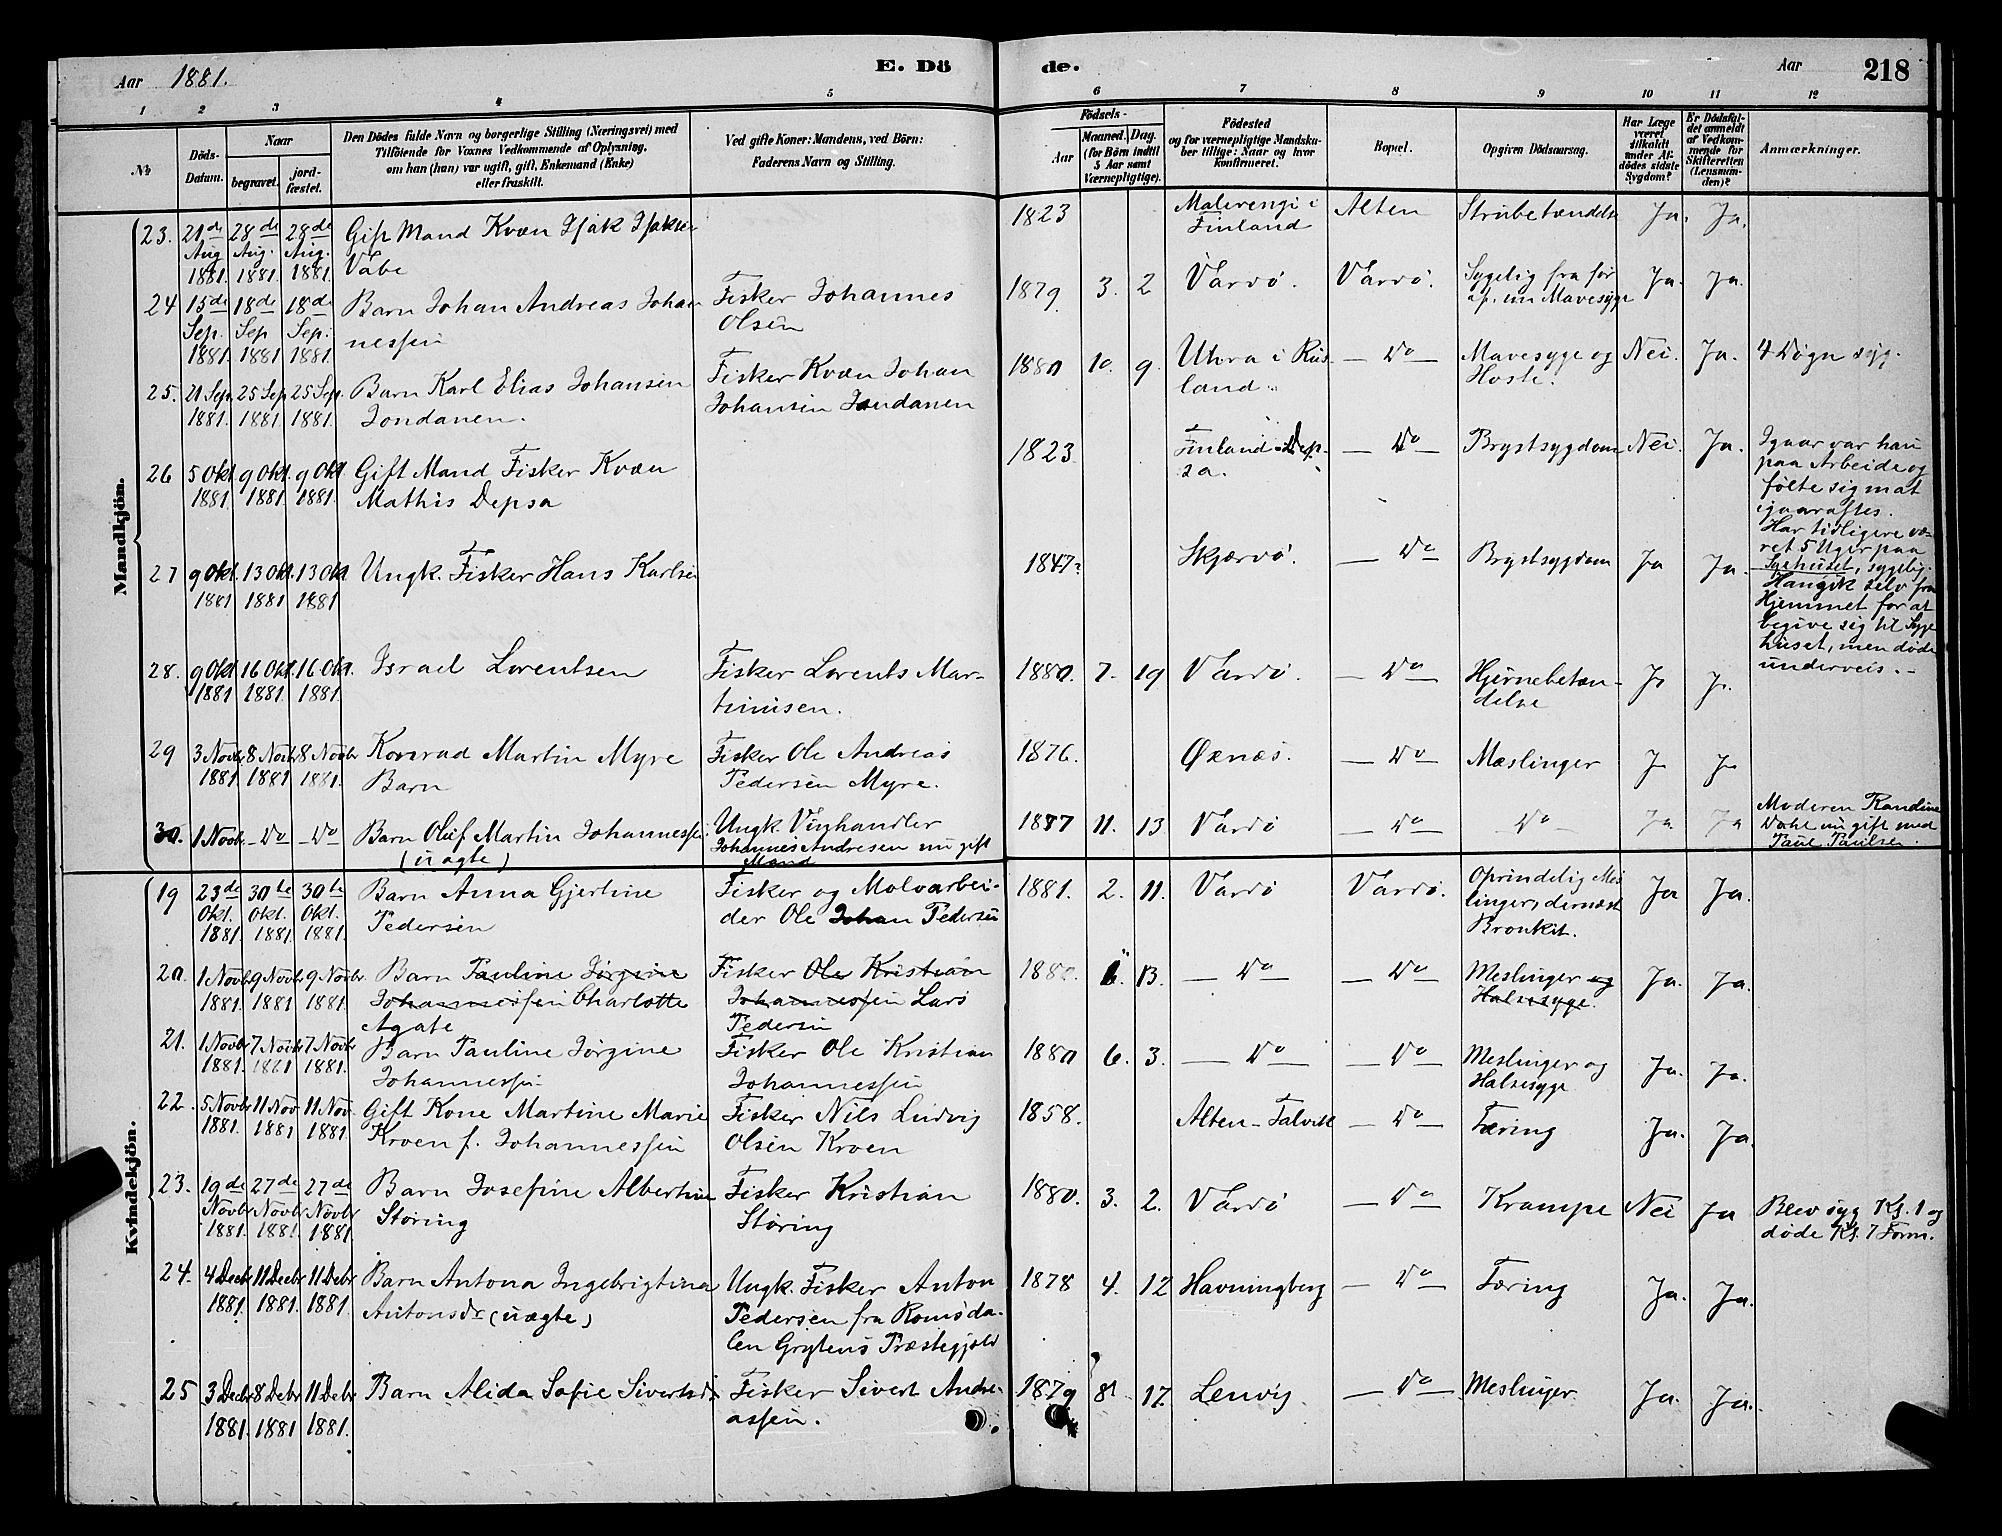 Aar 1881.
E. Dö
de.
Aar
218
1 2 3 4 5 6 7 8 9 10 11 12
No
Döds-
Datum.
Naar
begravet.
jord-
fæstet.
Den Dödes fulde Navn og borgerlige Stilling (Næringsvei) med
Tilföiende for Voxnes Vedkommende af Oplysning,
om han (hun) var ugift, gift, Enkemand (Enke)
eller fraskilt.
Ved gifte Koner: Mandens, ved Börn:
Faderens Navn og Stilling.
Födsels-
Aar
Maaned.
Dag.
(for Börn indtil
5 Aar samt
Værnepligtige).
Födested
og for værnepligtige Mandsku-
ber tillige: Naar og hvor
konfirmeret.
Bopæl.
Opgiven Dödsaarsag.
Har Læge
været
tilkaldt
under Af-
dödes sidste
Sygdom?
Er Dödsfal-
det anmeldt
af Vedkom-
mende for
Skifteretten
(Lensman-
den)?
Anmærkninger.
Mandkjön.
23. 21de Aug 1881. 28de Aug. 1881. 28de Aug. 1881.
Gift Mand Kvæn Isak Isaksen
Vabe
1823
Finland
Alten
Ja. Ja.
24 15de Sep. 1881. 18de Sep 1881 18de Sep. 1881.
Barn Johan Andreas Johan
nessen
Fisker Johannes
Olsen
1879 3. 2 Vardö. Vardö.
Sygelig fra för
af, nu Mavesyge
Ja. Ja.
25. 21 Sep. 1881. 25 Sep 1881. 25 Sep. 1881.
Barn Karl Elias Johansen
Jondanen.
Fisker Kvæn Johan
Johansen Jondanen
1880 10. 9.
i Rus
land.
Do
Mavesyge og
Hoste.
Nei. Ja. 4 Dögn syg.
26 5 Okt 1881. 9 Okt. 1881. 9 Okt 1881.
Gift Mand Fisker Kvæn
Mathis Depsa
1823
Finland Dep-
sa.
Do Brystsygdom Nei. Ja.
Igaar var han
paa Arbeide og
fölte sig mat
igaaraftes.
27 9 Okt. 1881 13 Okt. 1881 13 Okt 1881
Ungk. Fisker Hans Karlsen
1847? Skjærvö. Do Brystsygdom Ja Ja.
Har tidligere væ-
ret 5 Uger paa
Sygehuset, sygelig.
Han gik selv fra
Hjemmet for at
begive sig til Syge
huset, men döde
underveis.
28. 9 Okt 1881 16 Okt. 1881. 16 Okt. 1881.
Israel Lorentsen
Fisker Lorents Mar-
tinusen.
1880. 7. 19 Vardö. Do
Hjernebetæn-
delse
Ja Ja.
29 3 Novbr 1881 8 Novbr 1881 8 Novbr 1881.
Konrad Martin Myre
Barn
Fisker Ole Andreas
Pedersen Myre.
1876. Öxnæs. Do Mæslinger Ja Ja
30. 1 Novb. Do Do
Barn Oluf Martin Johannessen.
(uægte)
Ungk. Vinhandler
Johannes Andresen nu gift
Mand
1877 11. 13 Vardö Do Do Ja Ja
Moderen Randine
Dahl nu gift med
Paul Paulsen.
Kvindekjön.
19 23de Okt. 1881. 30te Okt. 1881. 30te Okt. 1881.
Barn Anna Gjertine
Pedersen
Fisker og Moloarbei-
der Ole Johan Pedersen
1881. 2. 11. Vardö Vardö.
Oprindelig Mes
linger, dernæst
Bronkit.
Ja Ja.
20. 1 Novbr 1881. 9 Novbr 1881 9 Novbr. 1881.
Barn Pauline Jörgine
Johannessen Charlotte
Agate
Fisker Ole Kristian
Johannessen Lars
Pedersen
1880. 6. 13. Do Do
Meslinger og
Halssyge.
Ja. Ja.
21. 1 Novbr 1881. 7 Novbr 1881 7 Novbr 1881.
Barn Pauline Jörgine
Johannessen
Fisker Ole Kristian
Johannessen
1880 6. 3. Do Do
Meslinger og
Halssyge
Ja. Ja.
22. 5 Novbr 1881. 11 Nov. 1881 11 Nov. 1881.
Gift Kone Martine Marie
Kroen f. Johannessen
Fisker Nils Ludvig
Olsen Kroen
1858. Alten-Talvik Do Tæring Ja. Ja.
23. 19de Novbr 1881. 27de Novbr 1881. 27de Novbr 1881
Barn Josefine Albertine
Störing
Fisker Kristian
Störing
1880. 3. 2. Vardö Do Krampe Nei Ja
Blev syg Kl. 1 og
döde Kl. 7 Form.
24. 4 Decbr 1881. 11 Decbr 1881. 11 Debr 1881.
Barn Antona Ingebrigtina
Antonsdr (uægte)
Ungk. Fisker Anton
Pedersen fra Romsda-
len Grytens Præstegjeld
1878 4. 12 Havningberg Do Tæring Ja. Ja.
25 3 Decbr 1881. 8 Debr 1881 11 Debr 1881.
Barn Alida Sofie Sivertsdr
Fisker Sivert Andre-
assen.
1879 8. 17. Lenvig Do Meslinger Ja. Ja.